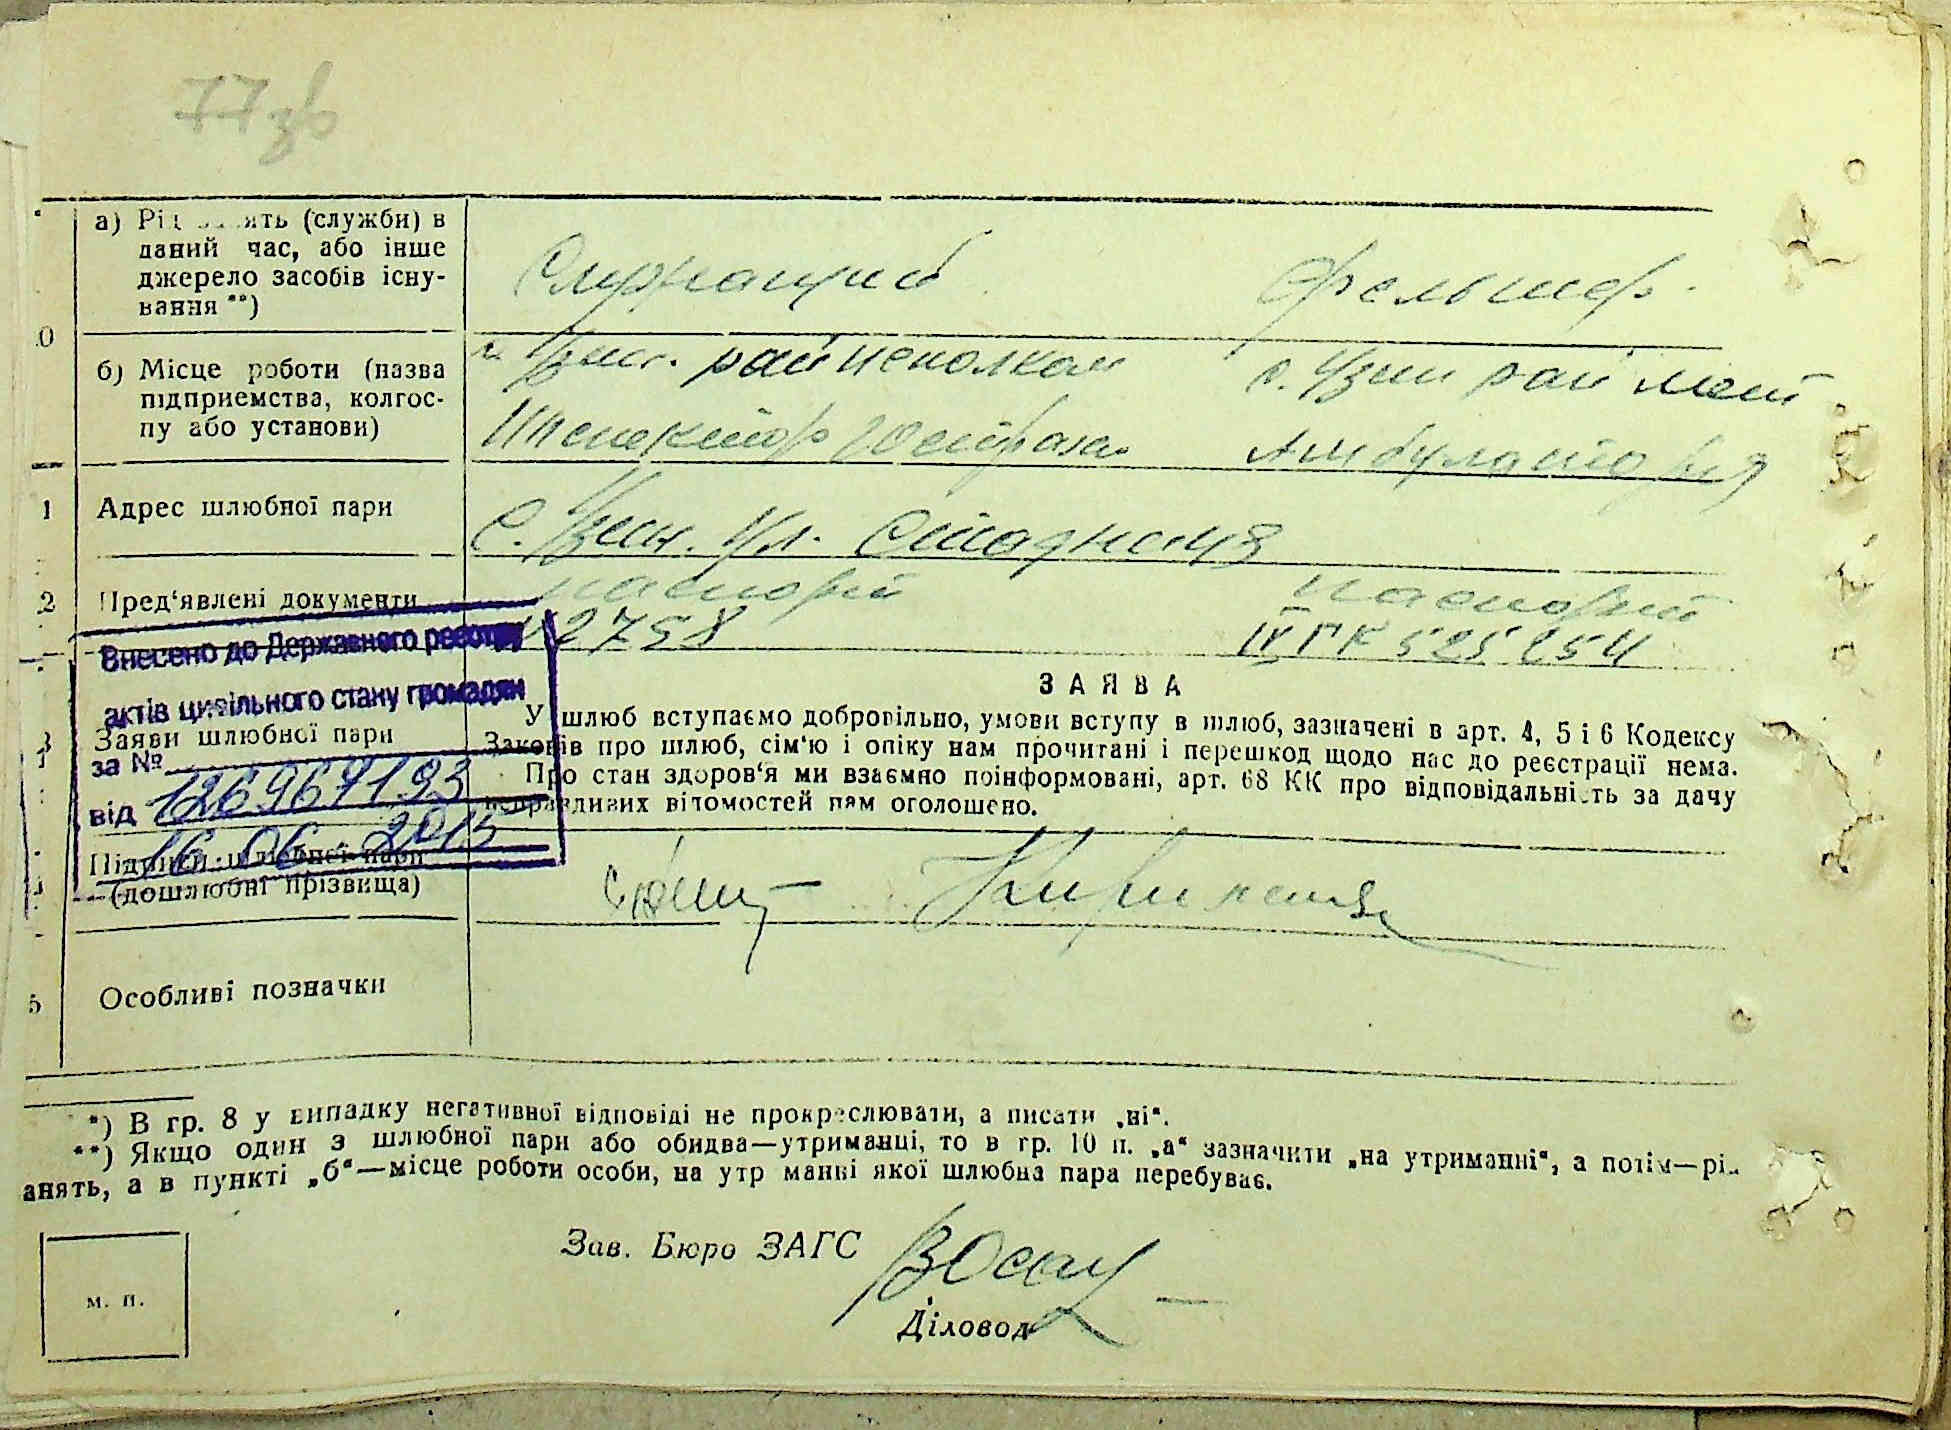 77зв
а) Рід занять (служби) в
даний час, або інше
джерело засобів існу-
вання **)
Служащий
Фельшер.
0
б) Місце роботи (назва
підприємства, колгос-
пу або установи)
райисполком
с. Узин рай
Амбулатория
1
Адрес шлюбної пари
С. Узин. Ул.
2
Пред'явлені документи
паспорт
2758
паспорт
IV ГК 525254
Внесено до Державного реєстру
актів цивільного стану громадян
за № 1269671193
від 16.06.2015
Заяви шлюбної пари
ЗАЯВА
У шлюб вступаємо добровільно, умови вступу в шлюб, зазначені в арт. 4, 5 і 6 Кодексу
Законів про шлюб, сім'ю і опіку нам прочитані і перешкод щодо нас до реєстрації нема.
Про стан здоров'я ми взаємно поінформовані, арт. 68 КК про відповідальність за дачу
неправдивих відомостей нам оголошено.
Підписи шлюбної пари
(дошлюбні прізвища)
5
Особливі позначки
*) В гр. 8 у випадку негативної відповіді не прокреслювати, а писати „ні“.
**) Якщо один з шлюбної пари або обидва—утриманці, то в гр. 10 п. „а“ зазначити „на утриманні“, а потім—рід
анять, а в пункті „б“—місце роботи особи, на утр манні якої шлюбна пара перебуває.
Зав. Бюро ЗАГС
м. п.
Діловод